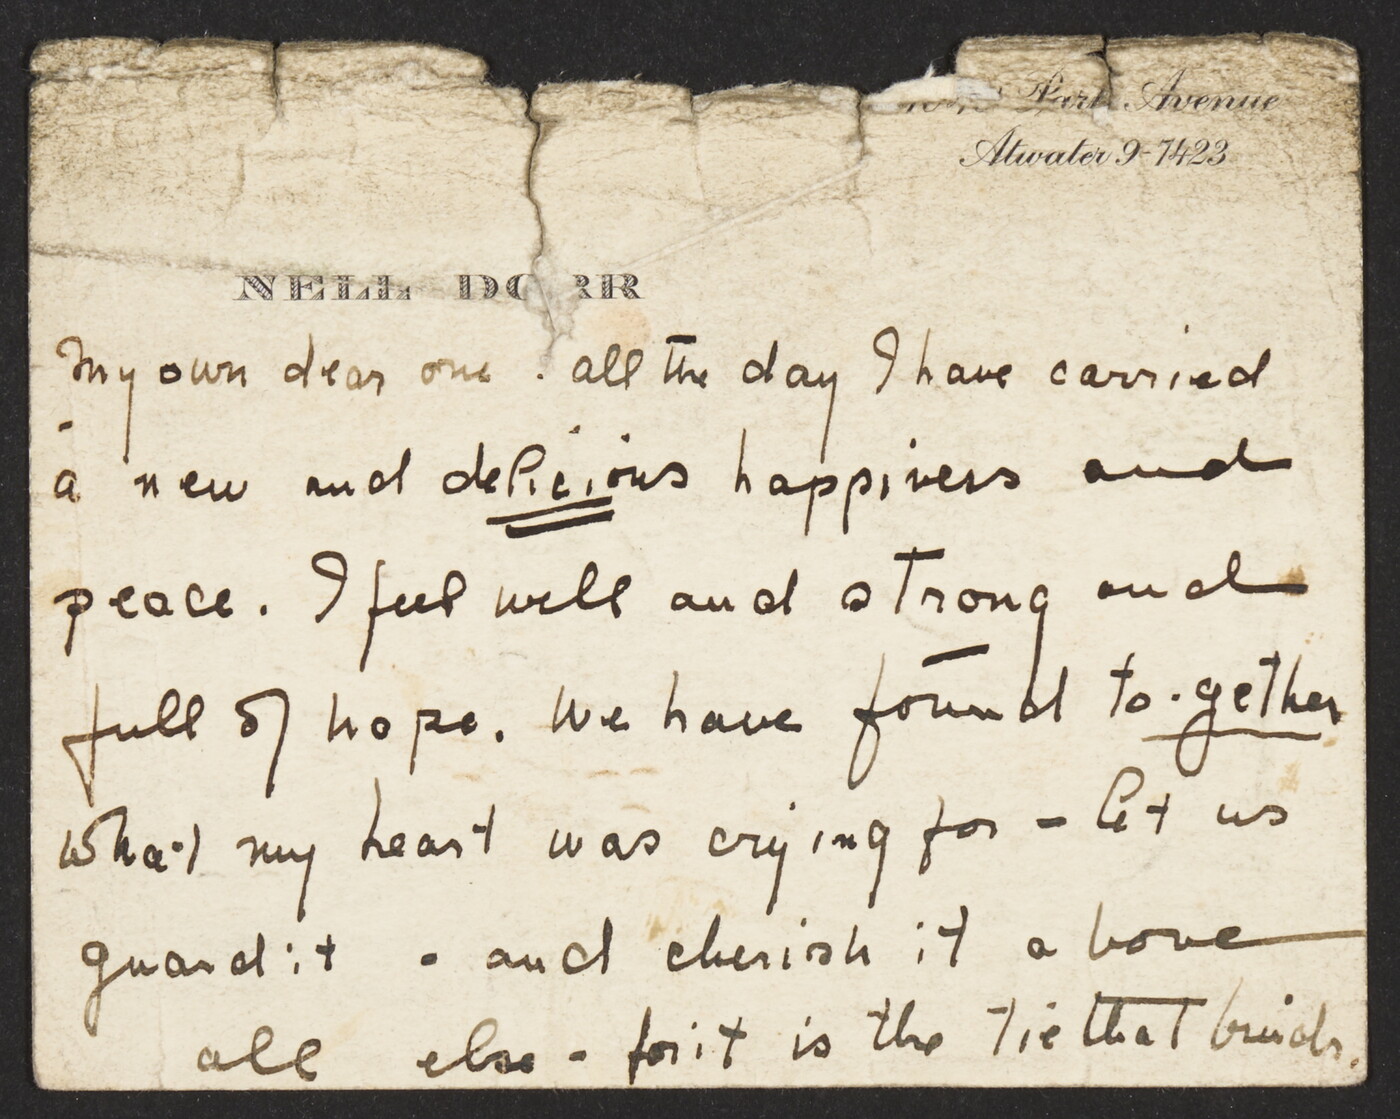 Park Avenue
Atwater 9-7423
NELL DORR
My own dear one . all the day I have carried
a new and delicious happiness and
peace. I feel well and strong and
full of hope. We have found to-gether
what my heart was crying for - let us
guard it - and cherish it above
all else - for it is the tie that binds.